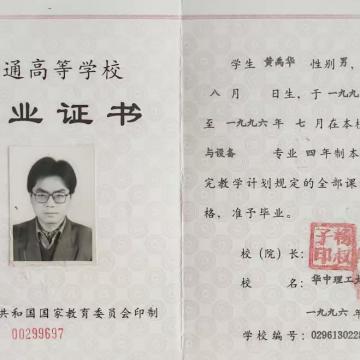 通高等学校
业证书
共和国国家教育委员会印制
00299697
学生 黄禹华 性别男,
八月 日生,于一九九
至一九九六年 七月在本校
与设备 专业四年制本
完教学计划规定的全部课
格,准予毕业。
校(院)长:
校 名: 华中理工大
一九九六年
学校编号: 0296130228